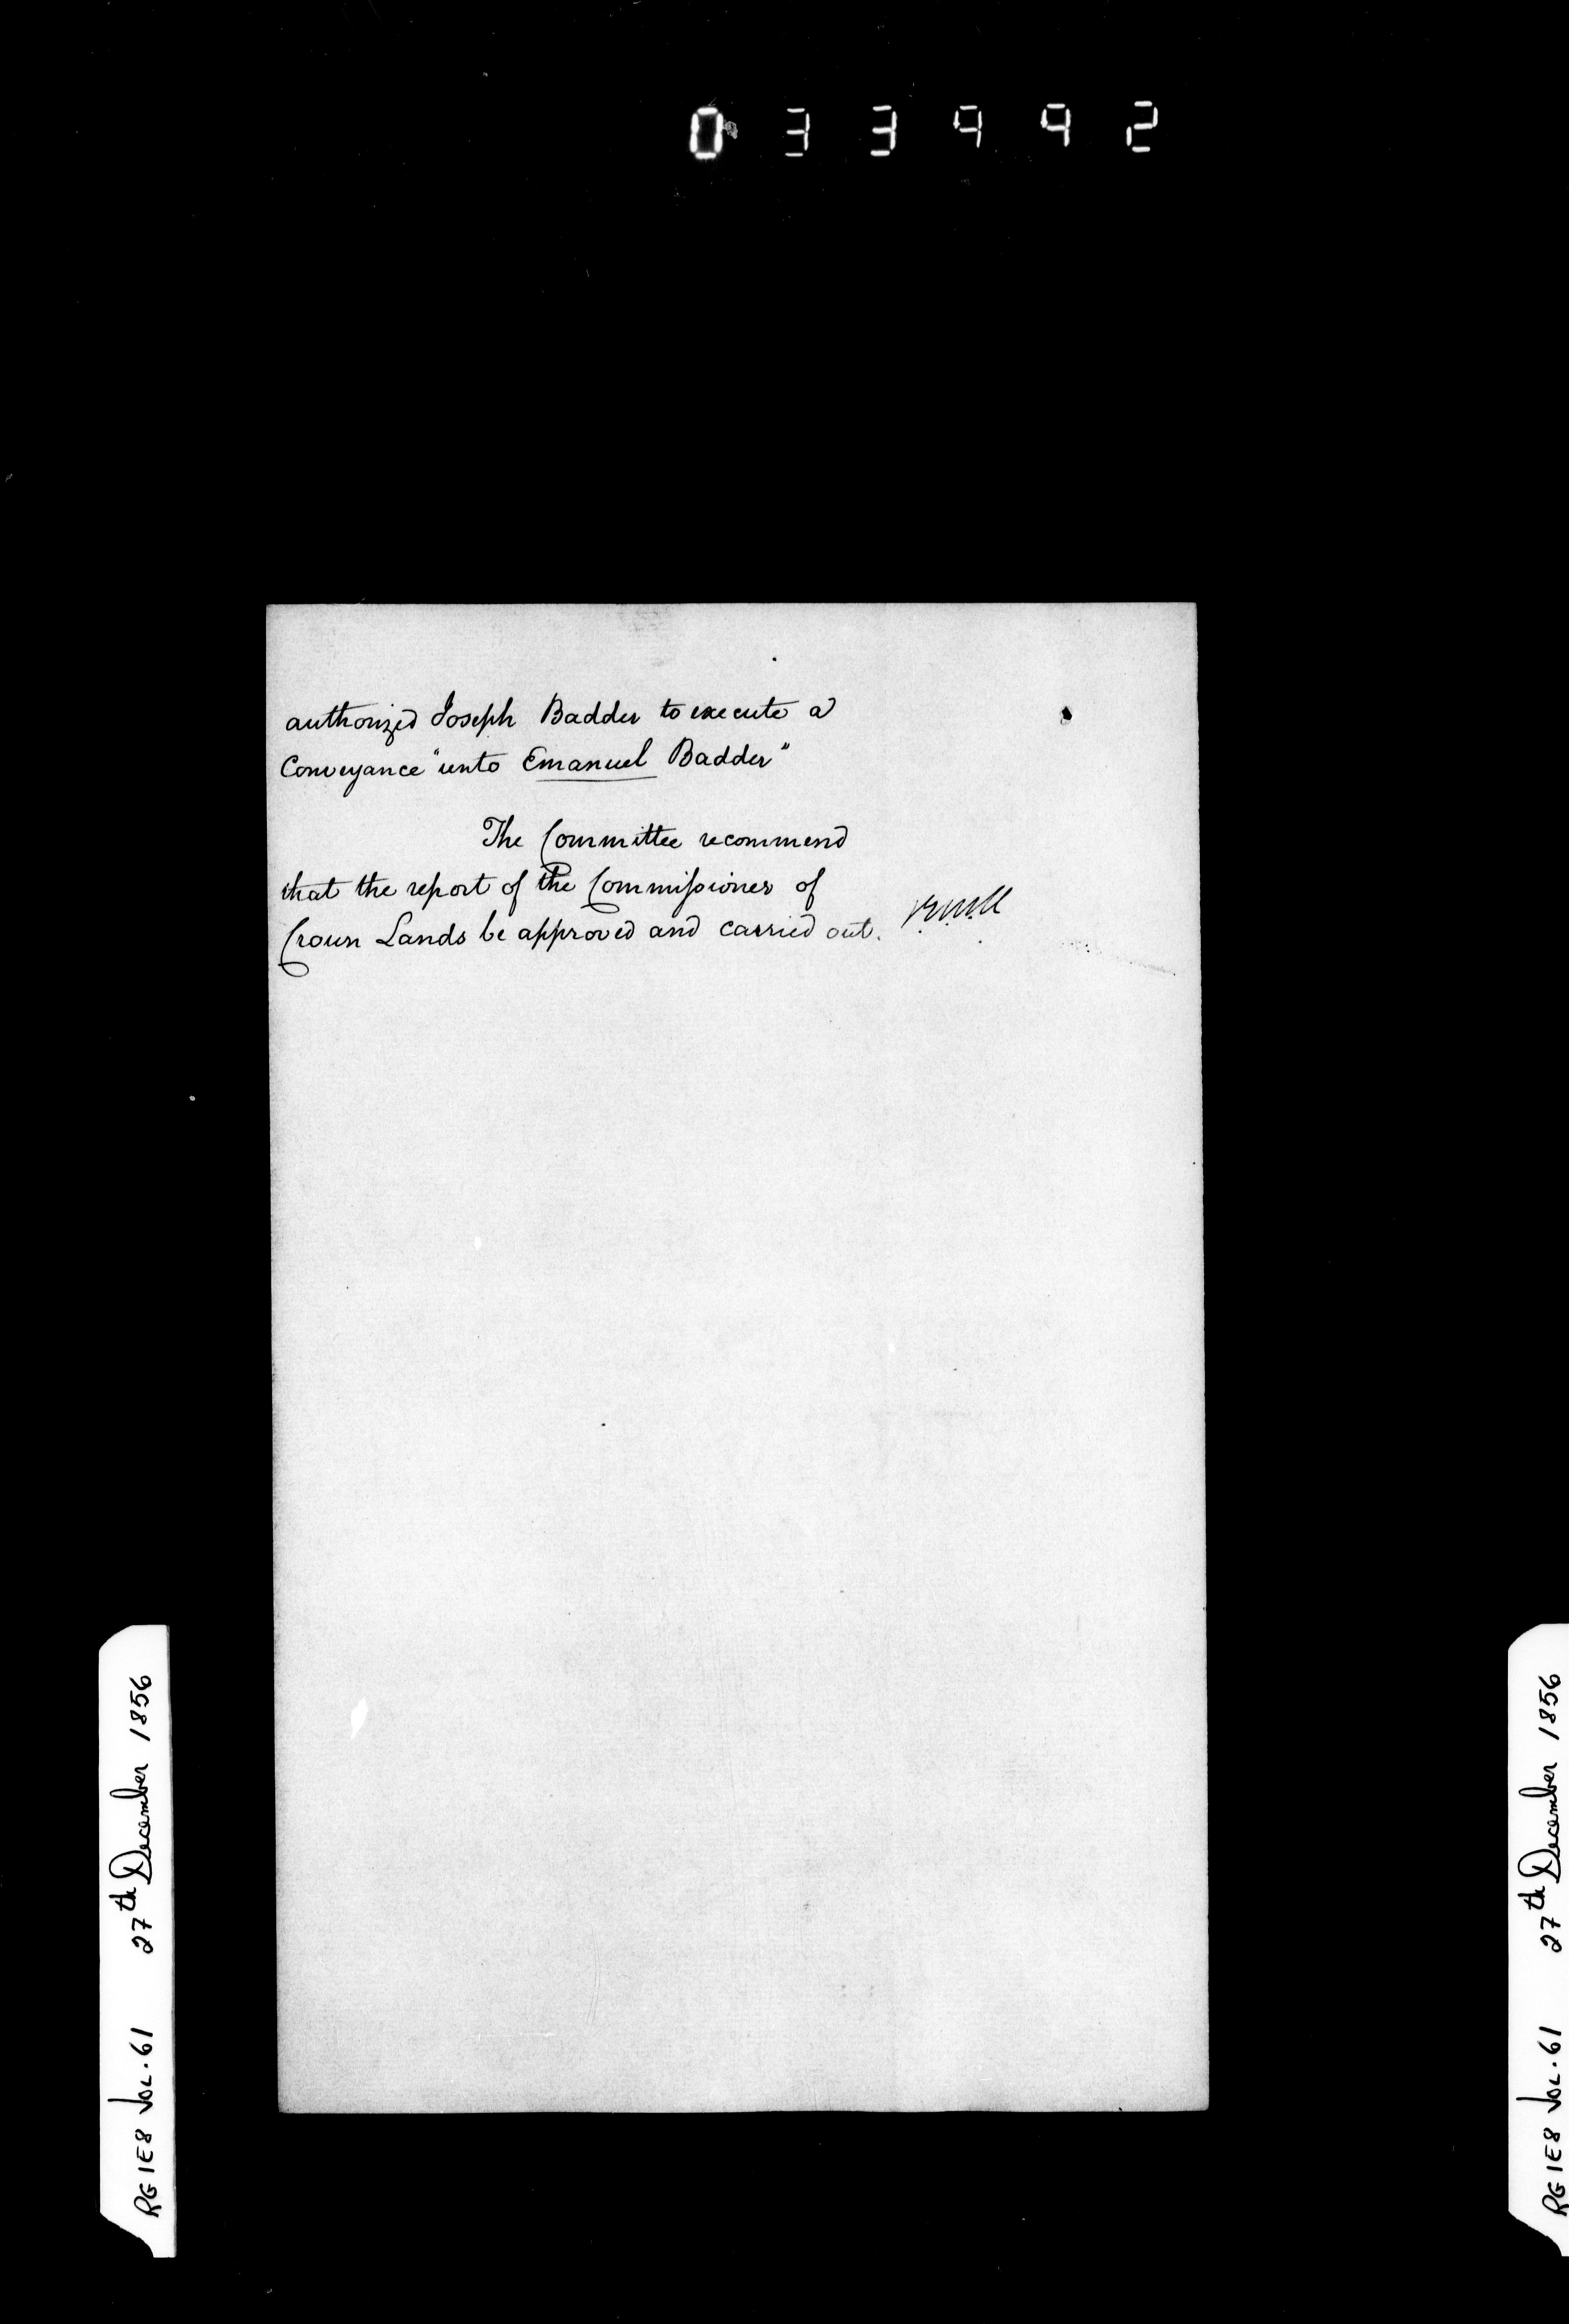 033992
authorized Joseph Badder to execute a
Conveyance "unto Emanuel Badder"
The Committee recommend
that the report of the Commissioner of
Crown Lands be approved and carried out.
RG 1E8 VOL.61 27th December 1856
RG 1E8 VOL.61 27th December 1856